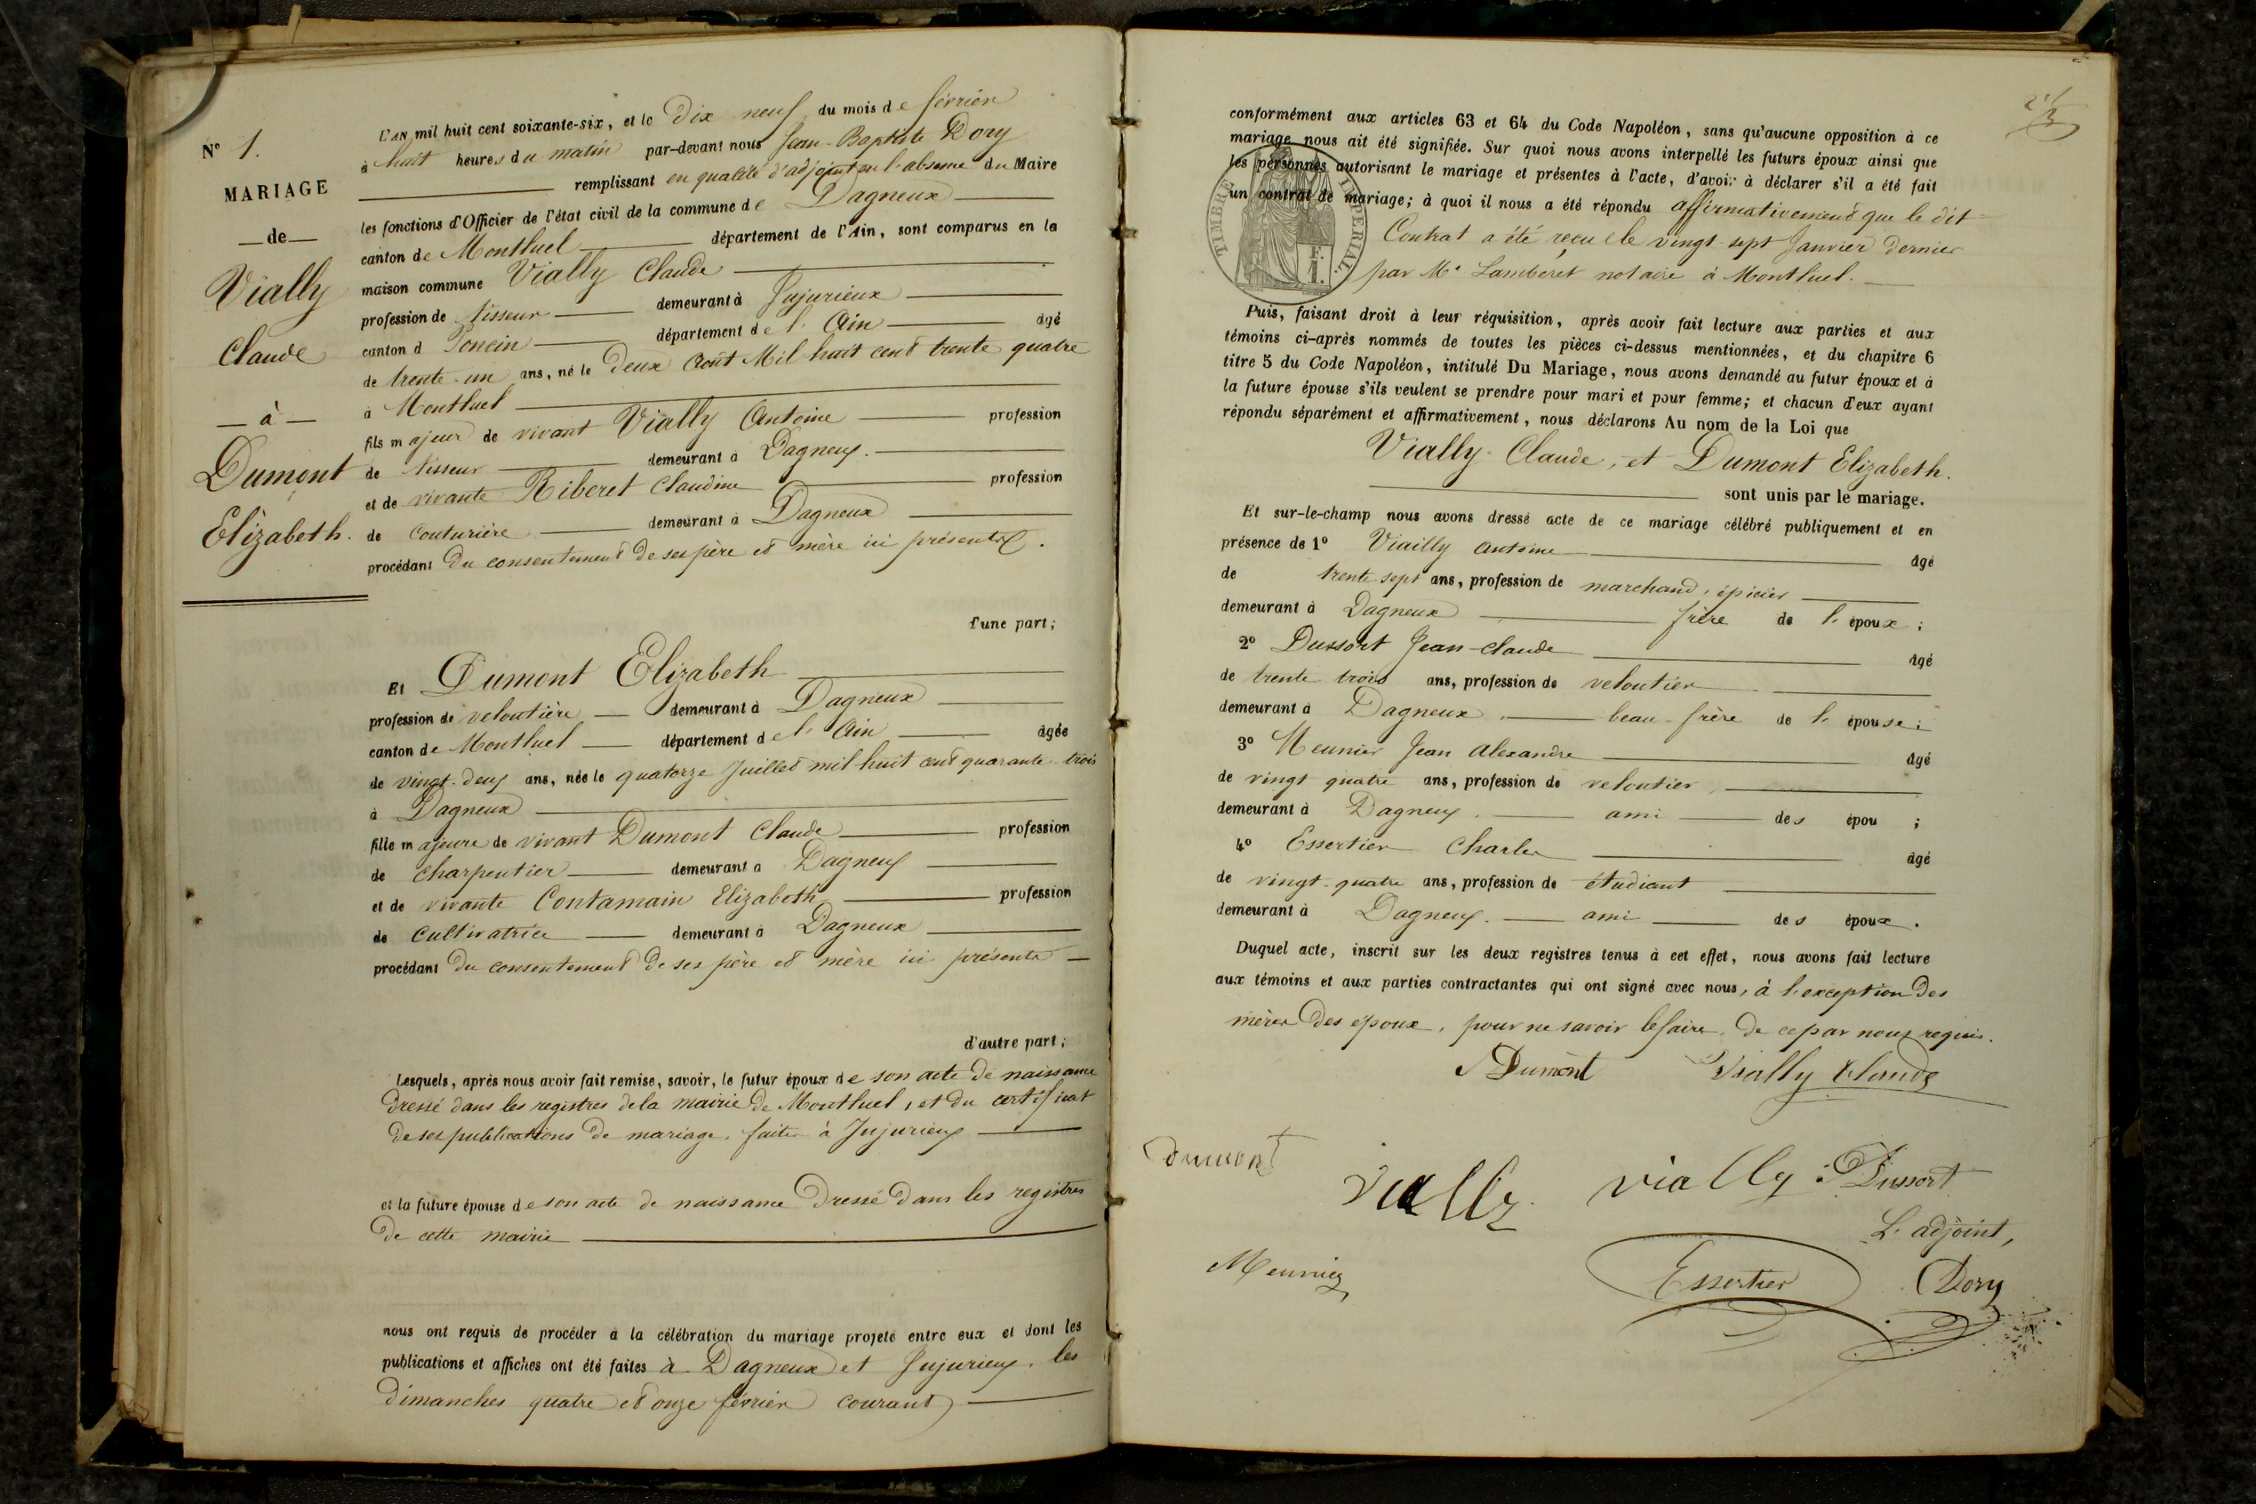 N° 1.
MARIAGE
de
Vially
Claude
à
Dumont
Elizabeth.
L'AN mil huit cent soixante-six, et le Dix neuf du mois de février
à huit heures du matin par-devant nous Jean-Baptiste Dory
remplissant en qualité d'adjoint en l'absence du Maire
les fonctions d'Officier de l'état civil de la commune de Dagneux
canton de Montluel département de l'Ain, sont comparus en la
maison commune Vially Claude
profession de tisseur demeurant à Jujurieux
canton d Poncin département de l'Ain agé
de trente-un ans, né le deux Août Mil huit cent trente quatre
à Montluel
fils majeur de vivant Vially Antoine profession
de tisseur demeurant à Dagneux.
et de vivante Riberet Claudine profession
de couturière demeurant à Dagneux
procédant du consentement de ses père et mère ici présents.
d'une part;
Et Dumont Elizabeth
profession de veloutière demeurant à Dagneux
canton de Montluel département de l'Ain agée
de vingt-deux ans, née le quatorze Juillet mil huit cent quarante-trois
à Dagneux
fille majeure de vivant Dumont Claude profession
de charpentier demeurant à Dagneux
et de vivante Contamain Elizabeth profession
de cultivatrice demeurant à Dagneux
procédant du consentement de ses père et mère ici présents
d'autre part;
Lesquels, après nous avoir fait remise, savoir, le futur époux de son acte de naissance
dressé dans les registres de la mairie de Montluel, et du certificat
de ses publications de mariage, faites à Jujurieux
et la future épouse de son acte de naissance dressé dans les registres
de cette mairie
nous ont requis de procéder à la célébration du mariage projeté entre eux et dont les
publications et affiches ont été faites à Dagneux et Jujurieux, les
dimanches quatre et onze février courant
conformément aux articles 63 et 64 du Code Napoléon, sans qu'aucune opposition à ce
mariage nous ait été signifiée. Sur quoi nous avons interpellé les futurs époux ainsi que
les personnes autorisant le mariage et présentes à l'acte, d'avoir à déclarer s'il a été fait
un contrat de mariage; à quoi il nous a été répondu affirmativement que le dit
TIMBRE IMPERIAL.
Contrat a été reçu le vingt-sept Janvier dernier
par Me Lamberet notaire à Montluel.
Puis, faisant droit à leur réquisition, après avoir fait lecture aux parties et aux
témoins ci-après nommés de toutes les pièces ci-dessus mentionnées, et du chapitre 6
titre 5 du Code Napoléon, intitulé Du Mariage, nous avons demandé au futur époux et à
la future épouse s'ils veulent se prendre pour mari et pour femme; et chacun d'eux ayant
répondu séparément et affirmativement, nous déclarons Au nom de la Loi que
Vially Claude, et Dumont Elizabeth.
sont unis par le mariage.
Et sur-le-champ nous avons dressé acte de ce mariage célébré publiquement et en
présence de 1° Viailly Antoine agé
de trente sept ans, profession de marchand épicier
demeurant à Dagneux frère de l' époux;
2° Dussort Jean-Claude agé
de trente trois ans, profession de veloutier
demeurant à Dagneux beau-frère de l' épouse;
3° Meunier Jean Alexandre agé
de vingt quatre ans, profession de veloutier
demeurant à Dagneux. ami des épou ;
4° Essertier Charles agé
de vingt-quatre ans, profession de étudiant
demeurant à Dagneux. ami des époux.
Duquel acte, inscrit sur les deux registres tenus à cet effet, nous avons fait lecture
aux témoins et aux parties contractantes qui ont signé avec nous, à l'exception des
mères des époux, pour ne savoir le faire, de ce par nous requis.
Dumont Vially Claude
dumont
Vially vially Dussort
L'adjoint,
Meunier Essertier Dory